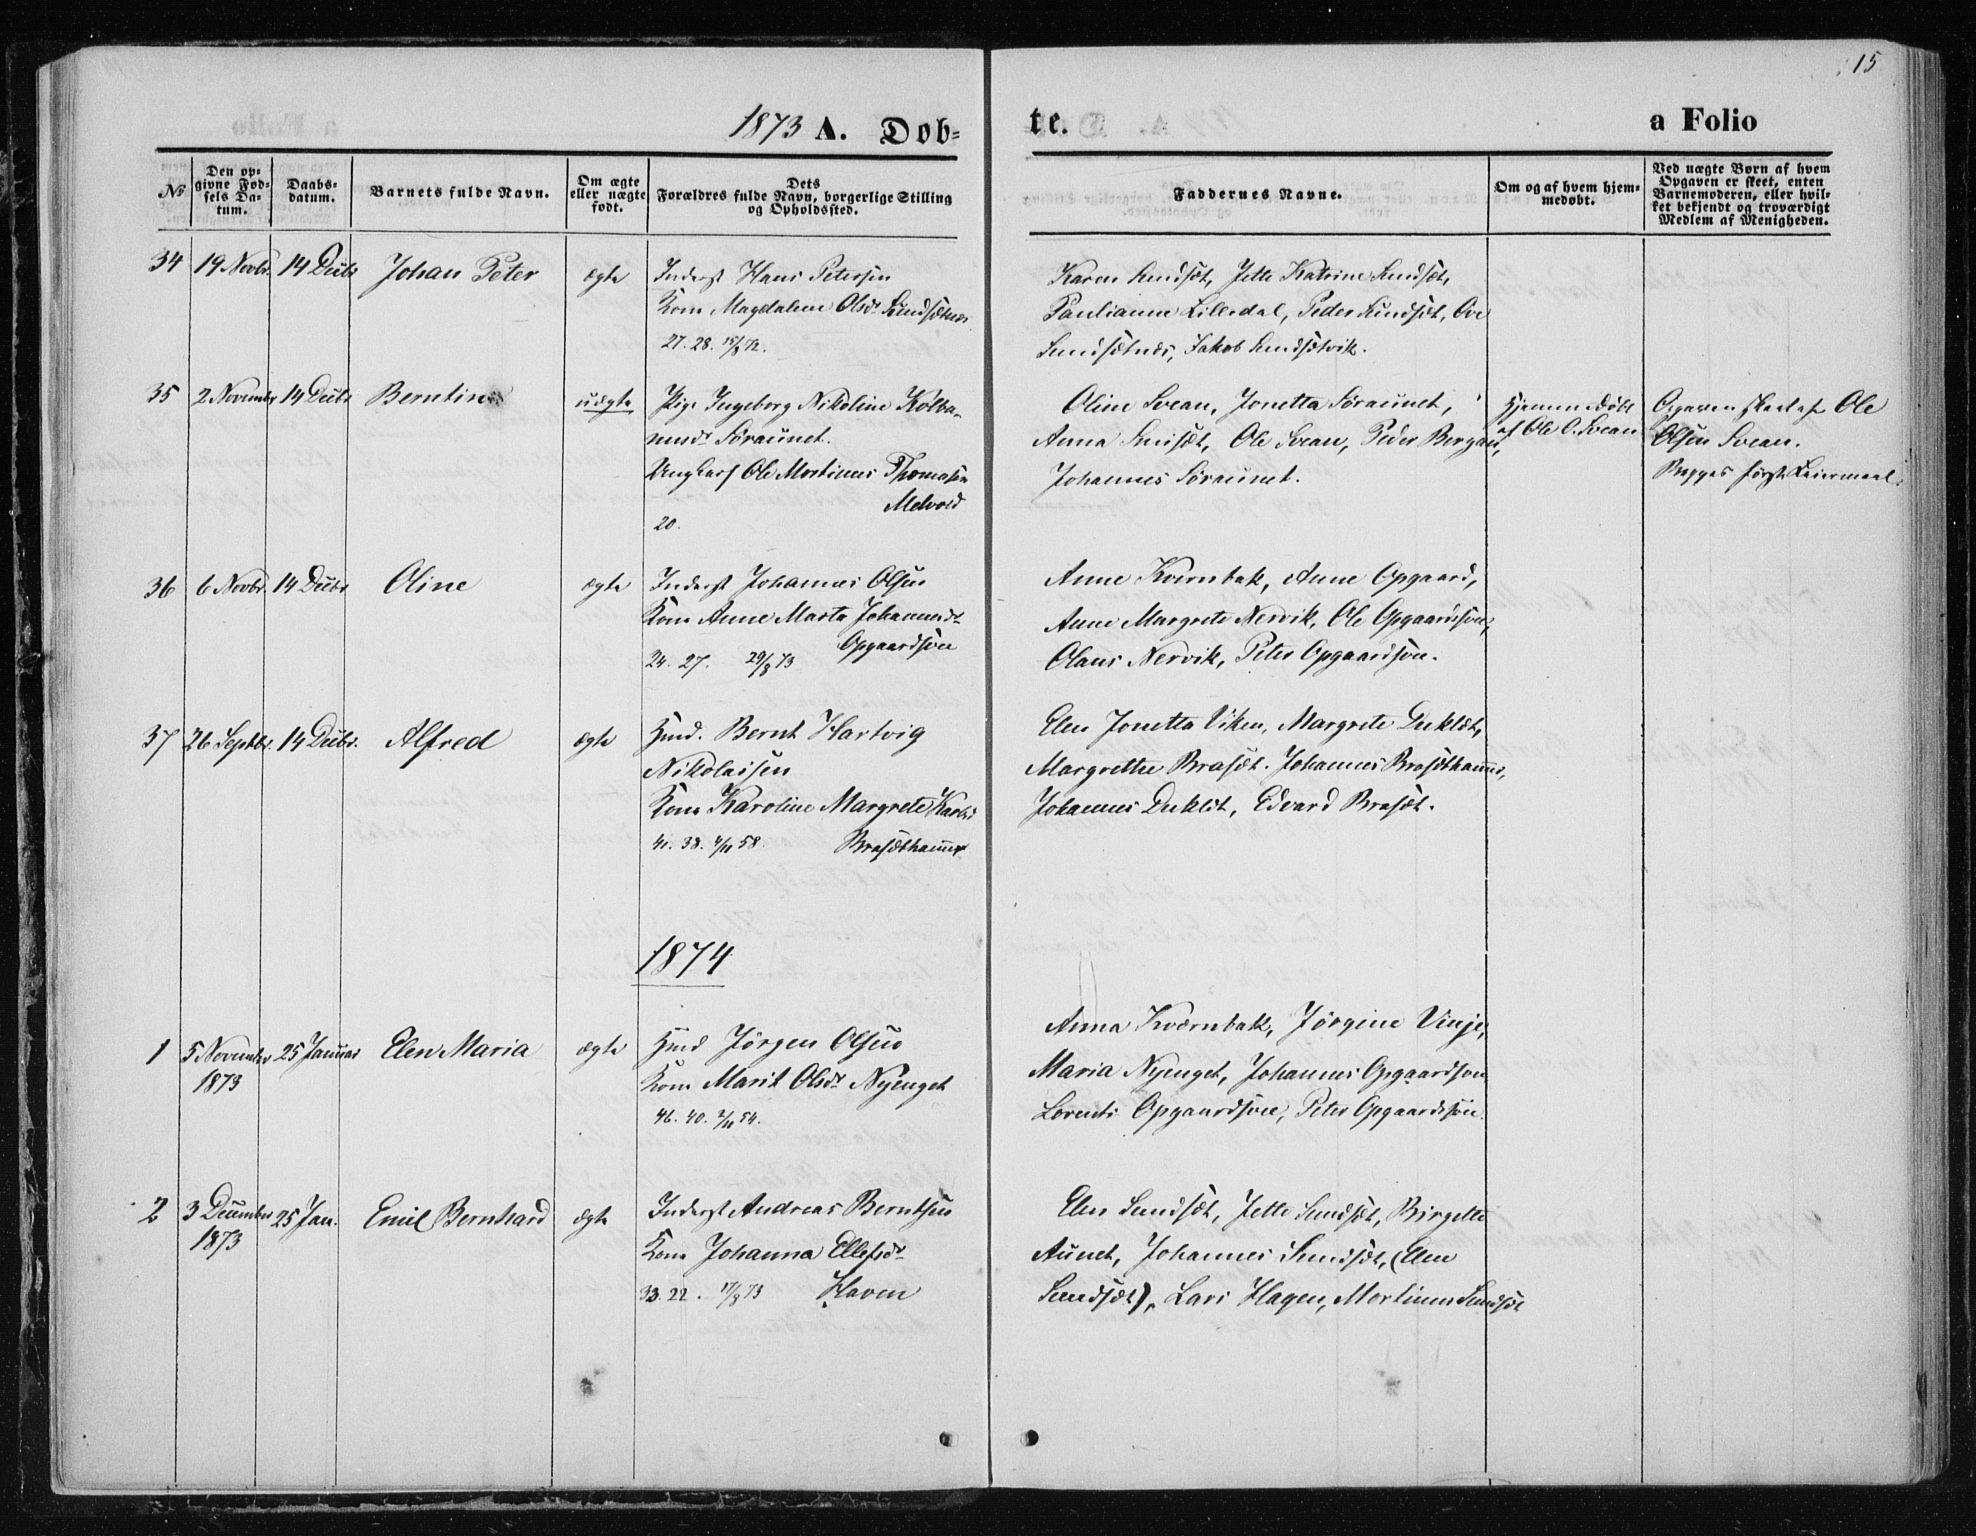 15
1873 A. Døb-
te.
a Folio
No
Den op-
givne Fød-
sels Da-
tum.
Daabs-
datum.
Barnets fulde Navn.
Om ægte
eller uægte
født.
Dets
Forældres fulde Navn, borgerlige Stilling
og Opholdssted.
Faddernes Navne.
Om og af hvem hjem-
medøbt.
Ved uægte Børn af hvem
Opgaven er skeet, enten
Barnemoderen, eller hvil-
ket bekjendt og troværdigt
Medlem af Menigheden.
34 19 Novbr. 14 Decbr Johan Peter ægte Inderst Hans Petersen
Kone Magdalene Olsdr. Sundsætnes
27. 28. 15/8 72.
Karen Sundsæt, Jette Katrine Sundsæt,
Paulianne Lilledal, Peder Sundsæt, Ove
Sundsætnes, Jakob Sundsætvik.
35 2 November 14 Decbr Berntine uægte Pige Ingeborg Nikoline Kolba-
nusdr Søraunet.
Ungkarl Ole Martinus Thomasen
Melvold
20.
Oline Svean, Jonetta Søraunet,
Anna Sunsæt, Ole Svean, Peder Bergan,
Johannes Søraunet.
Hjemmedøbt
af Ole O. Svean
Opgaven skeet af Ole
Olsen Svean.
Begges første Leiermaal.
36 6 Novbr. 14 Decbr Oline ægte Inderst Johannes Olsen
Kone Anne Marta Johannesdr.
Opgaardsøen
24. 27. 29/8 73
Anne Kvernbak, Anne Opgaard,
Anne Margrete Nervik, Ole Opgaardsøen,
Olaus Nervik, Peter Opgaardsøen.
37 26 Septbr. 14 Decbr. Alfred ægte Hmd. Bernt Hartvig
Nikolaisen
Kone Karoline Margrete Karlsd
Brasæthammer
41. 38. 4/11 58.
Elen Jonetta Viken, Margrete Duklæt,
Margrethe Brasæt. Johannes Brasæthammer,
Johannes Duklæt, Edvard Brasæt.
1874
1 5 November 25 Januar Elen Maria ægte Hmd Jørgen Olsen
1873
Kone Marit Olsdr. Nyenget
46. 40. 2/11 54.
Anna Kværnbak, Jørgine Vinje,
Maria Nyenget, Johannes Opgaardsøen
Lorents Opgaardsøen, Peter Opgaardsøen.
2 3 December 25 Jan. Emil Bernhard ægte Inderst Andreas Berntsen
1873
Kone Johanna Ellefsdr.
33. 22. 17/8 73 Haven
Elen Sundsæt, Jette Sundsæt, Birgitte
Aunet, Johannes Sundsæt, (Elen
Sundsæt), Lars Hagen, Martinus Sundsæt